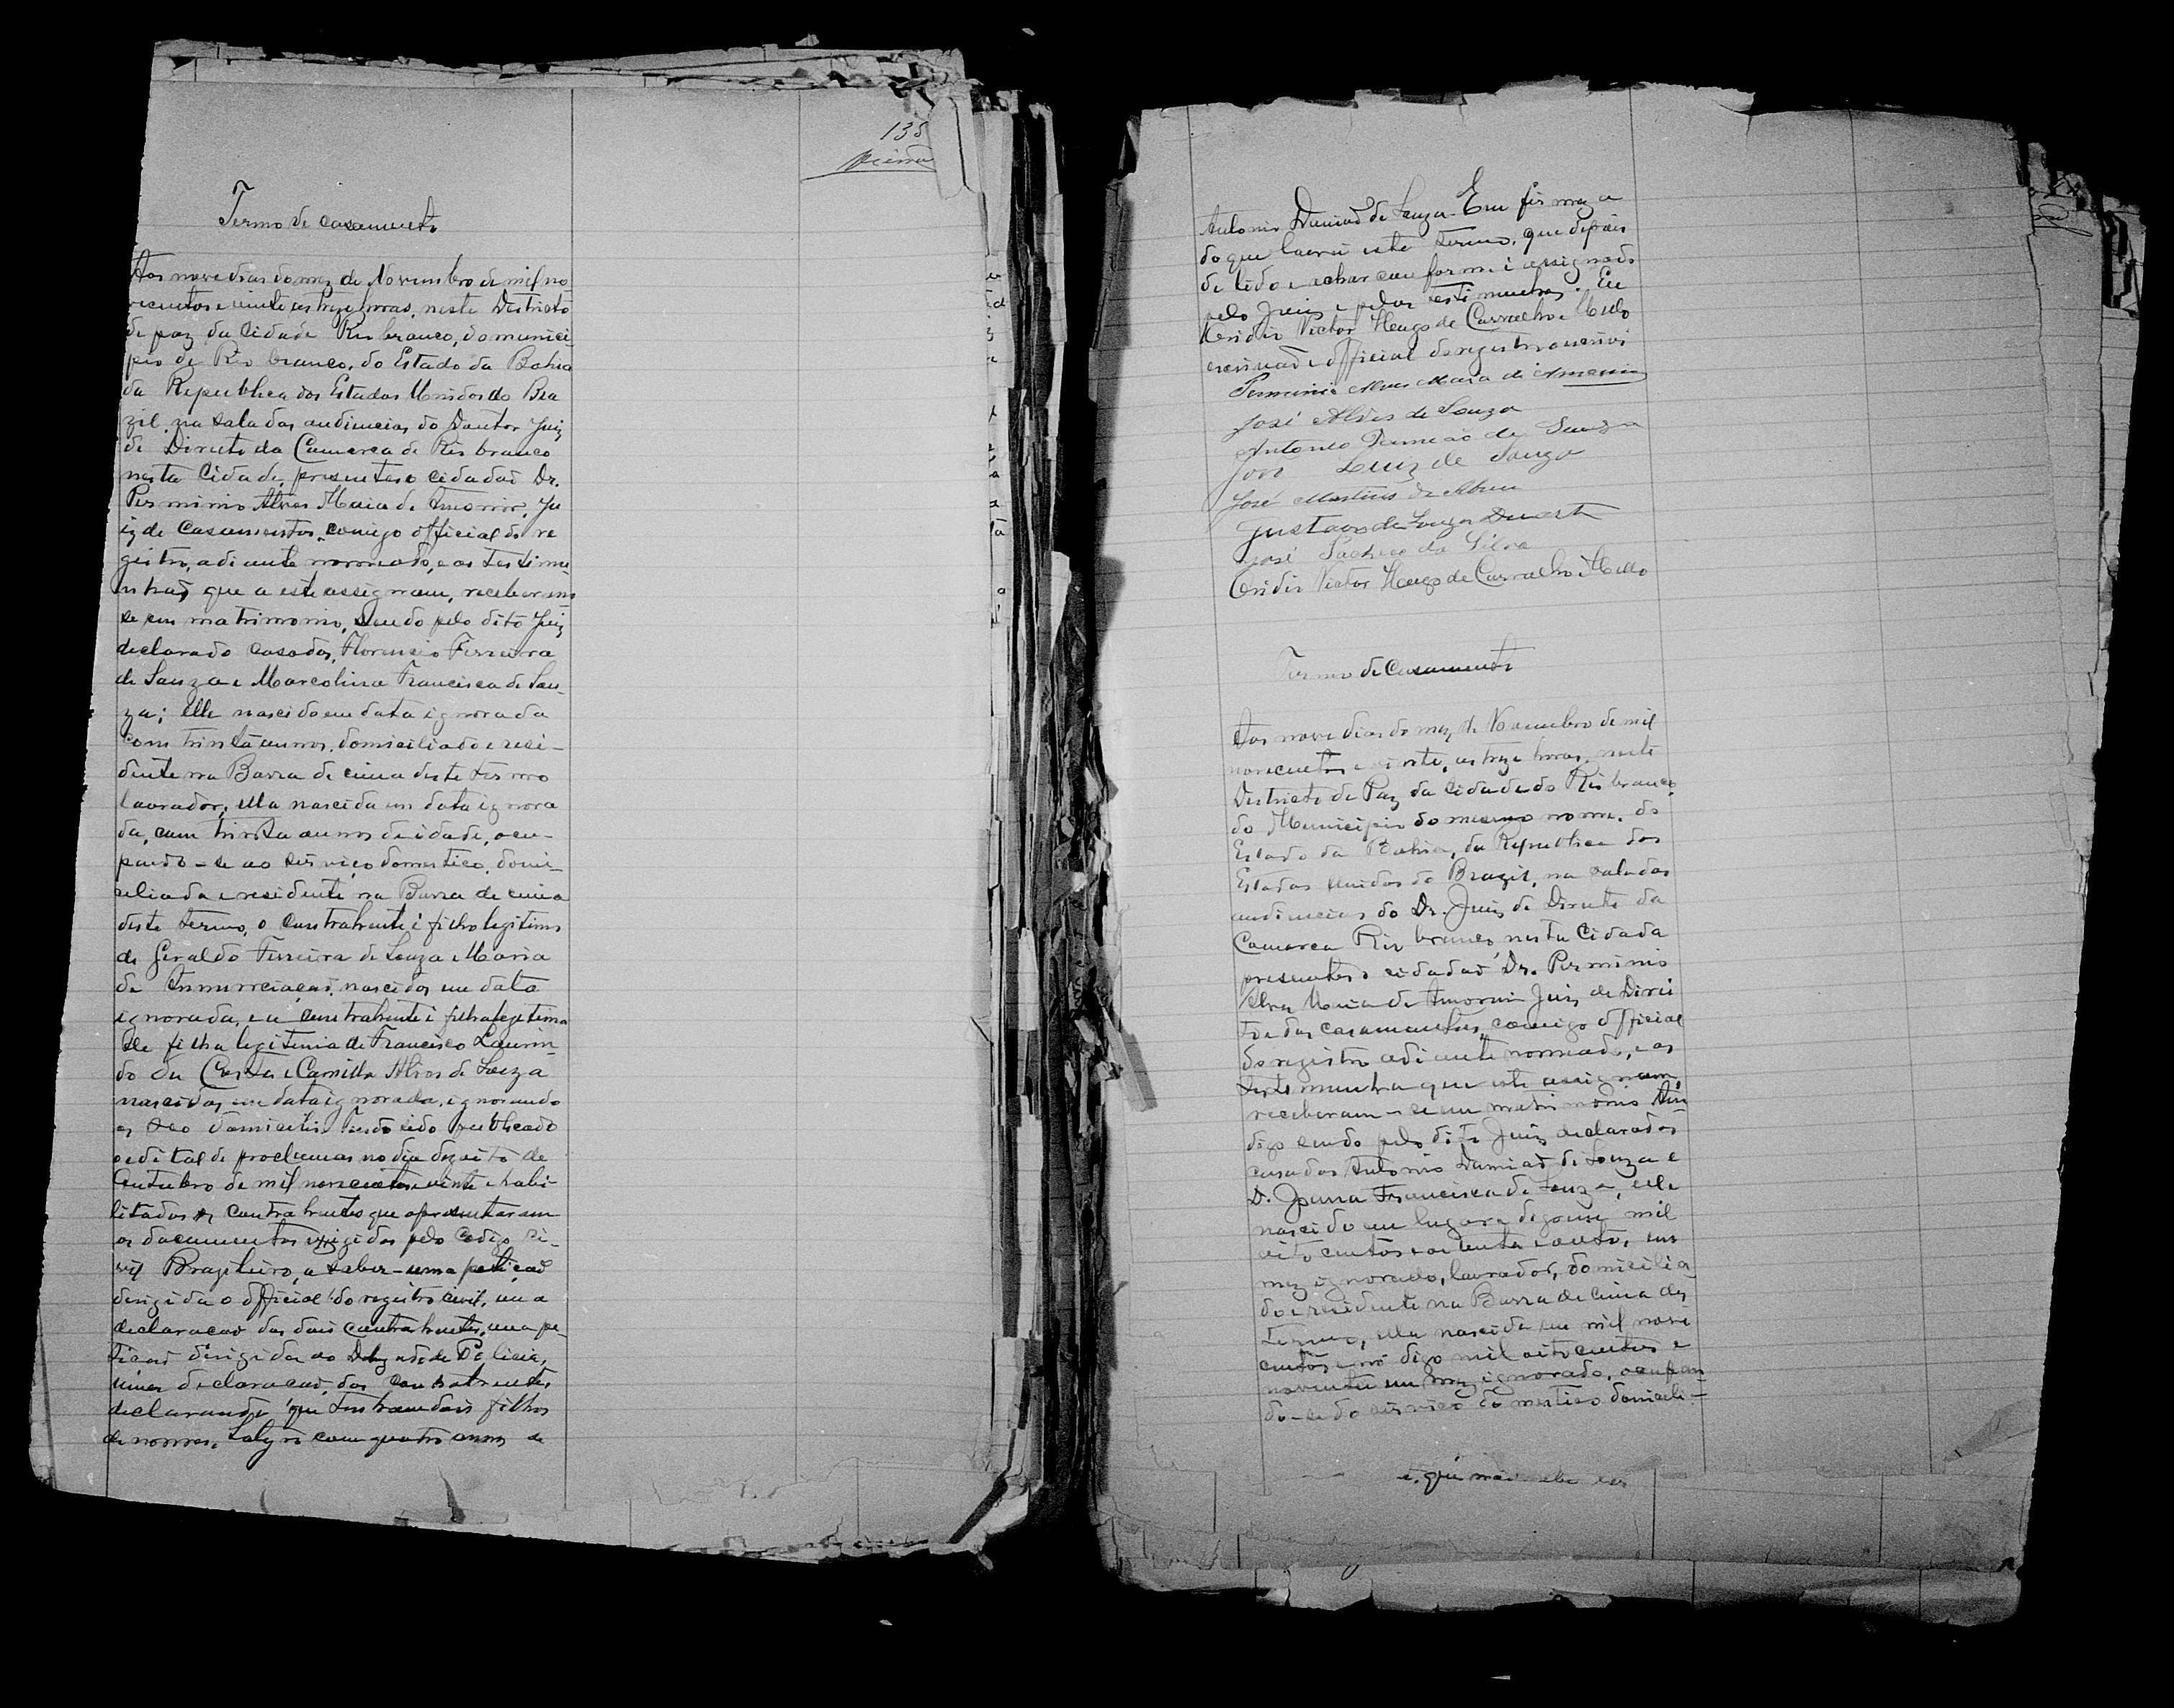 135
Termo de casamento
Aos nove dias do mez de Novembro de mil no
vecentos e vinte as treze horas, neste Districto
de paz da cidade Rio branco, do munici
pio de Rio branco, do Estado da Bahia
da Republica dos Estados Unidos do Bra
zil, na sala das audiencias do Doutor Juiz
de Direito da Comarca de Rio branco
nesta Cidade, presentes o cidadaõ Dr.
Perminio Alves Maia de Amorim, Ju
iz de Casamentos, comigo official do re
gistro, adiante nomeado, e as testimu-
nhas que a este assignam, receberam
se em matrimonio, sendo pelo dito Juiz
declarado casados, Florencio Ferreira
de Souza e Marcolina Francisca de Sou-
za; elle nascido em data ignorada
com trinta annos, domiciliado e resi-
dente na Barra de cima deste termo
lavrador, ella nascida em data ignora
da, com trinta annos de idade, ocu-
pando-se ao serviço domestico, domi-
ciliada e residente na Barra de cima
deste termo, o contrahente é filho legitimo
de Geraldo Ferreira de Souza e Maria
da Annunciaçaõ, nascidos em data
ignorada, e a contrahente é filha legitima
filha legitima de Francisco Laurin-
do da Costa e Camilla Alves de Souza
nascidos em data ignorada, ignorando
o seo domicilio. Tendo sido publicado
o edital de proclamas no dia dezoito de
Outubro de mil novecentos e vinte e habi-
litados os contrahentes que apresentaram
os documentos exigidos pelo Codigo Ci-
vil Brazileiro, a saber - uma petiçaõ
dirigida o official do registro civil, uma
declaracaõ dos dois contrahentes, uma pe-
ticaõ dirigida ao Delegado de Policia,
uma declaracaõ, dos contrahentes
declarando que tenham dois filhos
de nomes, Satyro com quatro annos de
Antonio Damiaõ de Souza. Em firmeza
do que lavrei este termo, que depois
de lido e achar conforme é assignado
pelo Juiz e pelas testimunhas. Eu
Ceridio Victor Hugo de Carvalho e Mello
escrivaõ e official do registro escrivi
Perminio Alves Maia de Amorim
José Alves de Souza
Antonio Damiaõ de Souza
José Luiz de Souza
José Martins de Abreu
Gustavo de Souza Duarte
José Pacheco da Silva
Ceridio Victor Hugo de Carvalho e Mello
Termo de Casamento
Aos nove dias do mez de Novembro de mil
novecentos e vinte, as treze horas, neste
Districto de Paz da Cidade do Rio branco,
do Municipio do mesmo nome, do
Estado da Bahia, da Republica dos
Estados Unidos do Brazil, na sala das
audiencias do Dr. Juiz de Direito da
Comarca Rio branco, nesta Cidade
presentes o cidadaõ Dr. Perminio
Alves Maia de Amorim Juiz de Direi
to e dos casamentos, comigo official
do registro adiante nomeado, e as
testemunha que este assignam
receberam-se em matrimonio
digo sendo pelo dito Juiz declarados
casados Antonio Damiaõ de Souza e
D. Joanna Francisca de Souza, elle
nascido em lugar e digo em mil
oito centos e oitenta e oito, em
mez ignorado, lavrador, domicilia
do e residente na Barra de cima des
termo, ella nascida em mil nove
centos e no digo mil oito centos e
noventa em mez ignorado, ocupan
do-se do serviço domestico domicili-